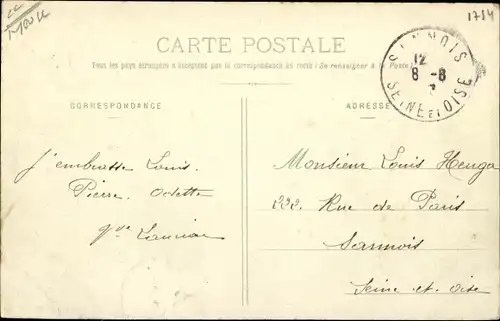 1784
CARTE POSTALE
Tous les pays étrangers n'acceptent pas la correspondance au recto (Se renseigner à la Poste)
CORRESPONDANCE
ADRESSE
SANNOIS
12
8 - 8
SEINE ET OISE
J'embrasse Louis.
Pierre. Odette
Monsieur Louis Henga
222. Rue de Paris
Sannois
Seine-et-oise